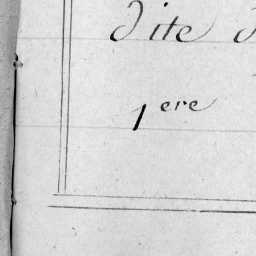 dite
1ere